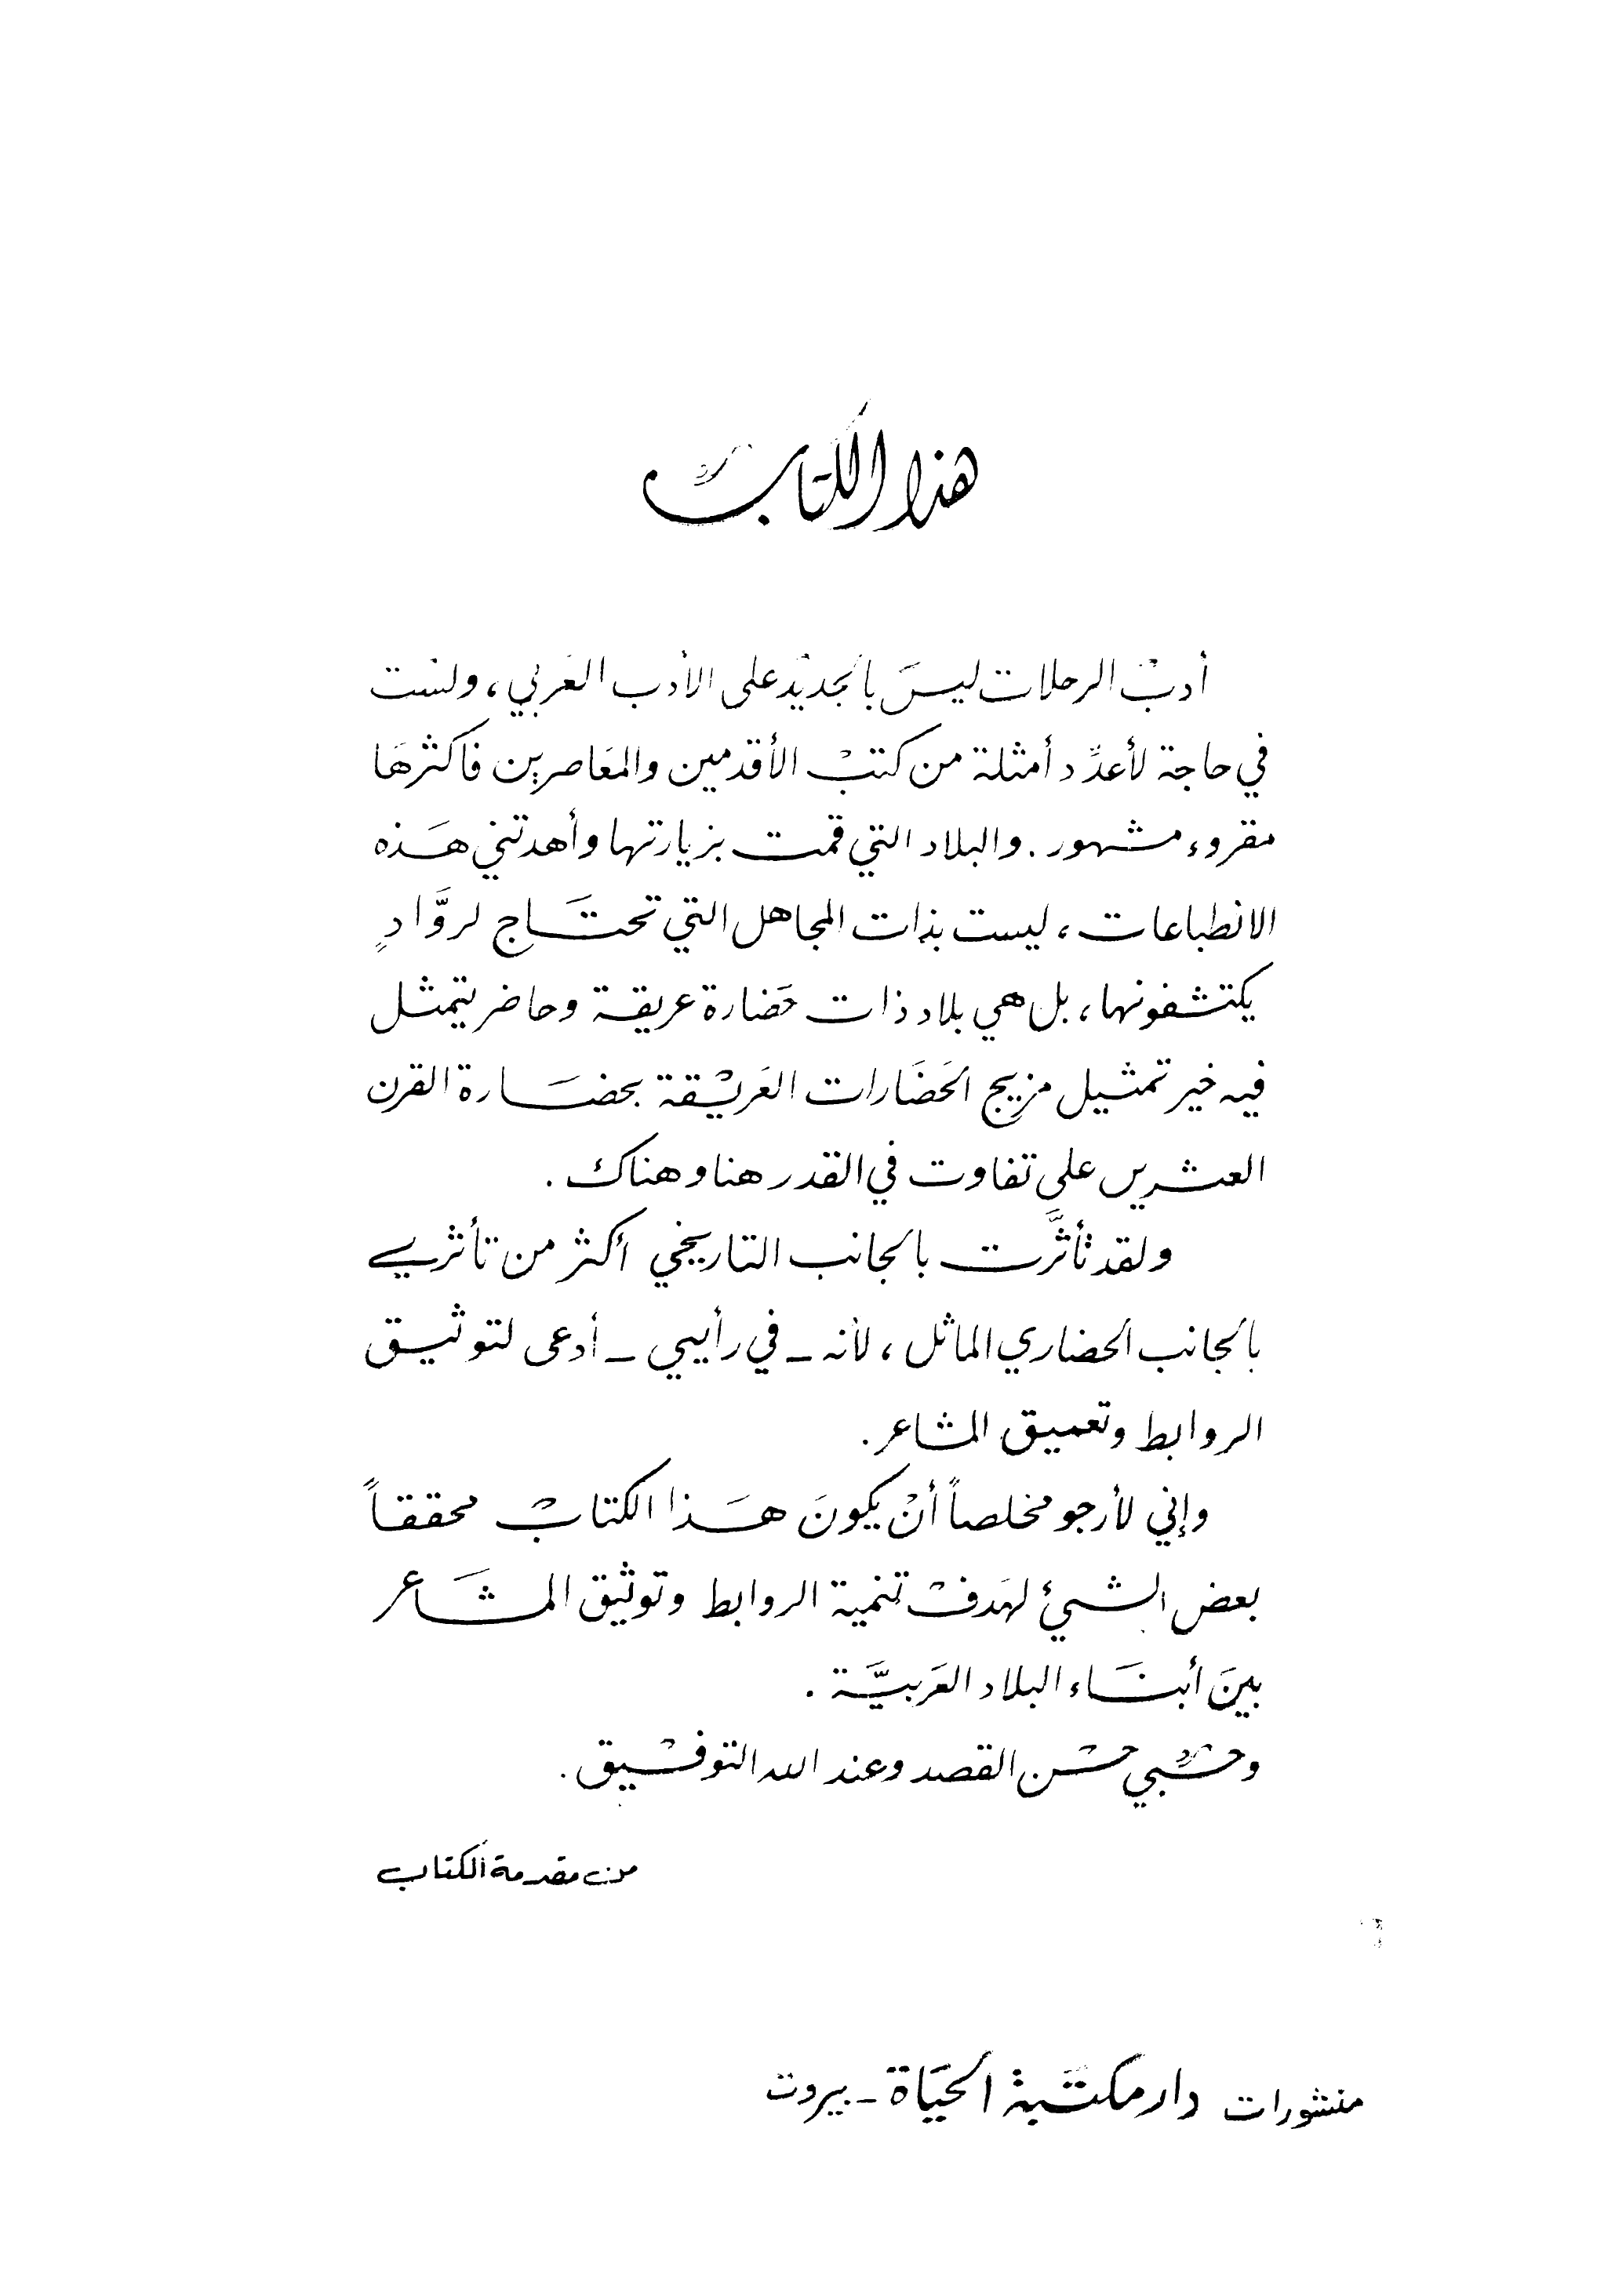 هذا الكتاب
أدبْ الرحلات ليسَ بالجديْد على الأدب العَربي ، ولسْت
في حاجة لأعدِّد أمثلة من كتبْ الأقدمين والمعَاصرين فاكثرهَا
مقروء مشهور . والبلاد التي قمت بزيارتها وأهدتني هَذه
الانطباعات ، ليست بذات المجاهل التي تحتَاج لروَّادٍ
يكتشفونها ، بل هي بلاد ذات حَضارة عريقة وحاضر يتمثل
فيه خير تمثيل مزيج الحَضَارات العَريْقة بحضَارة القرن
العشرين على تفاوت في القدر هنا وهناك .
ولقد تأثَّرت بالجانب التاريخي أكثر من تأثري
بالجانب الحضاري الماثل ، لأنه ـ في رأيي ـ أدعى لتوثيق
الروابط وتعميق المشاعر .
وإني لأرجو مخلصاً أنْ يكونَ هَذا الكتابْ محققاً
بعض الشيئ لهَدفْ تنمية الروابط وتوثيق المشَاعر
بينَ أبنَاء البلاد العَربيَّة .
وحسْبي حسْن القصد وعند الله التوفْيق .
من مقدمة الكتاب
منشورات دار مكتَبة الحيَاة ـ بيروت